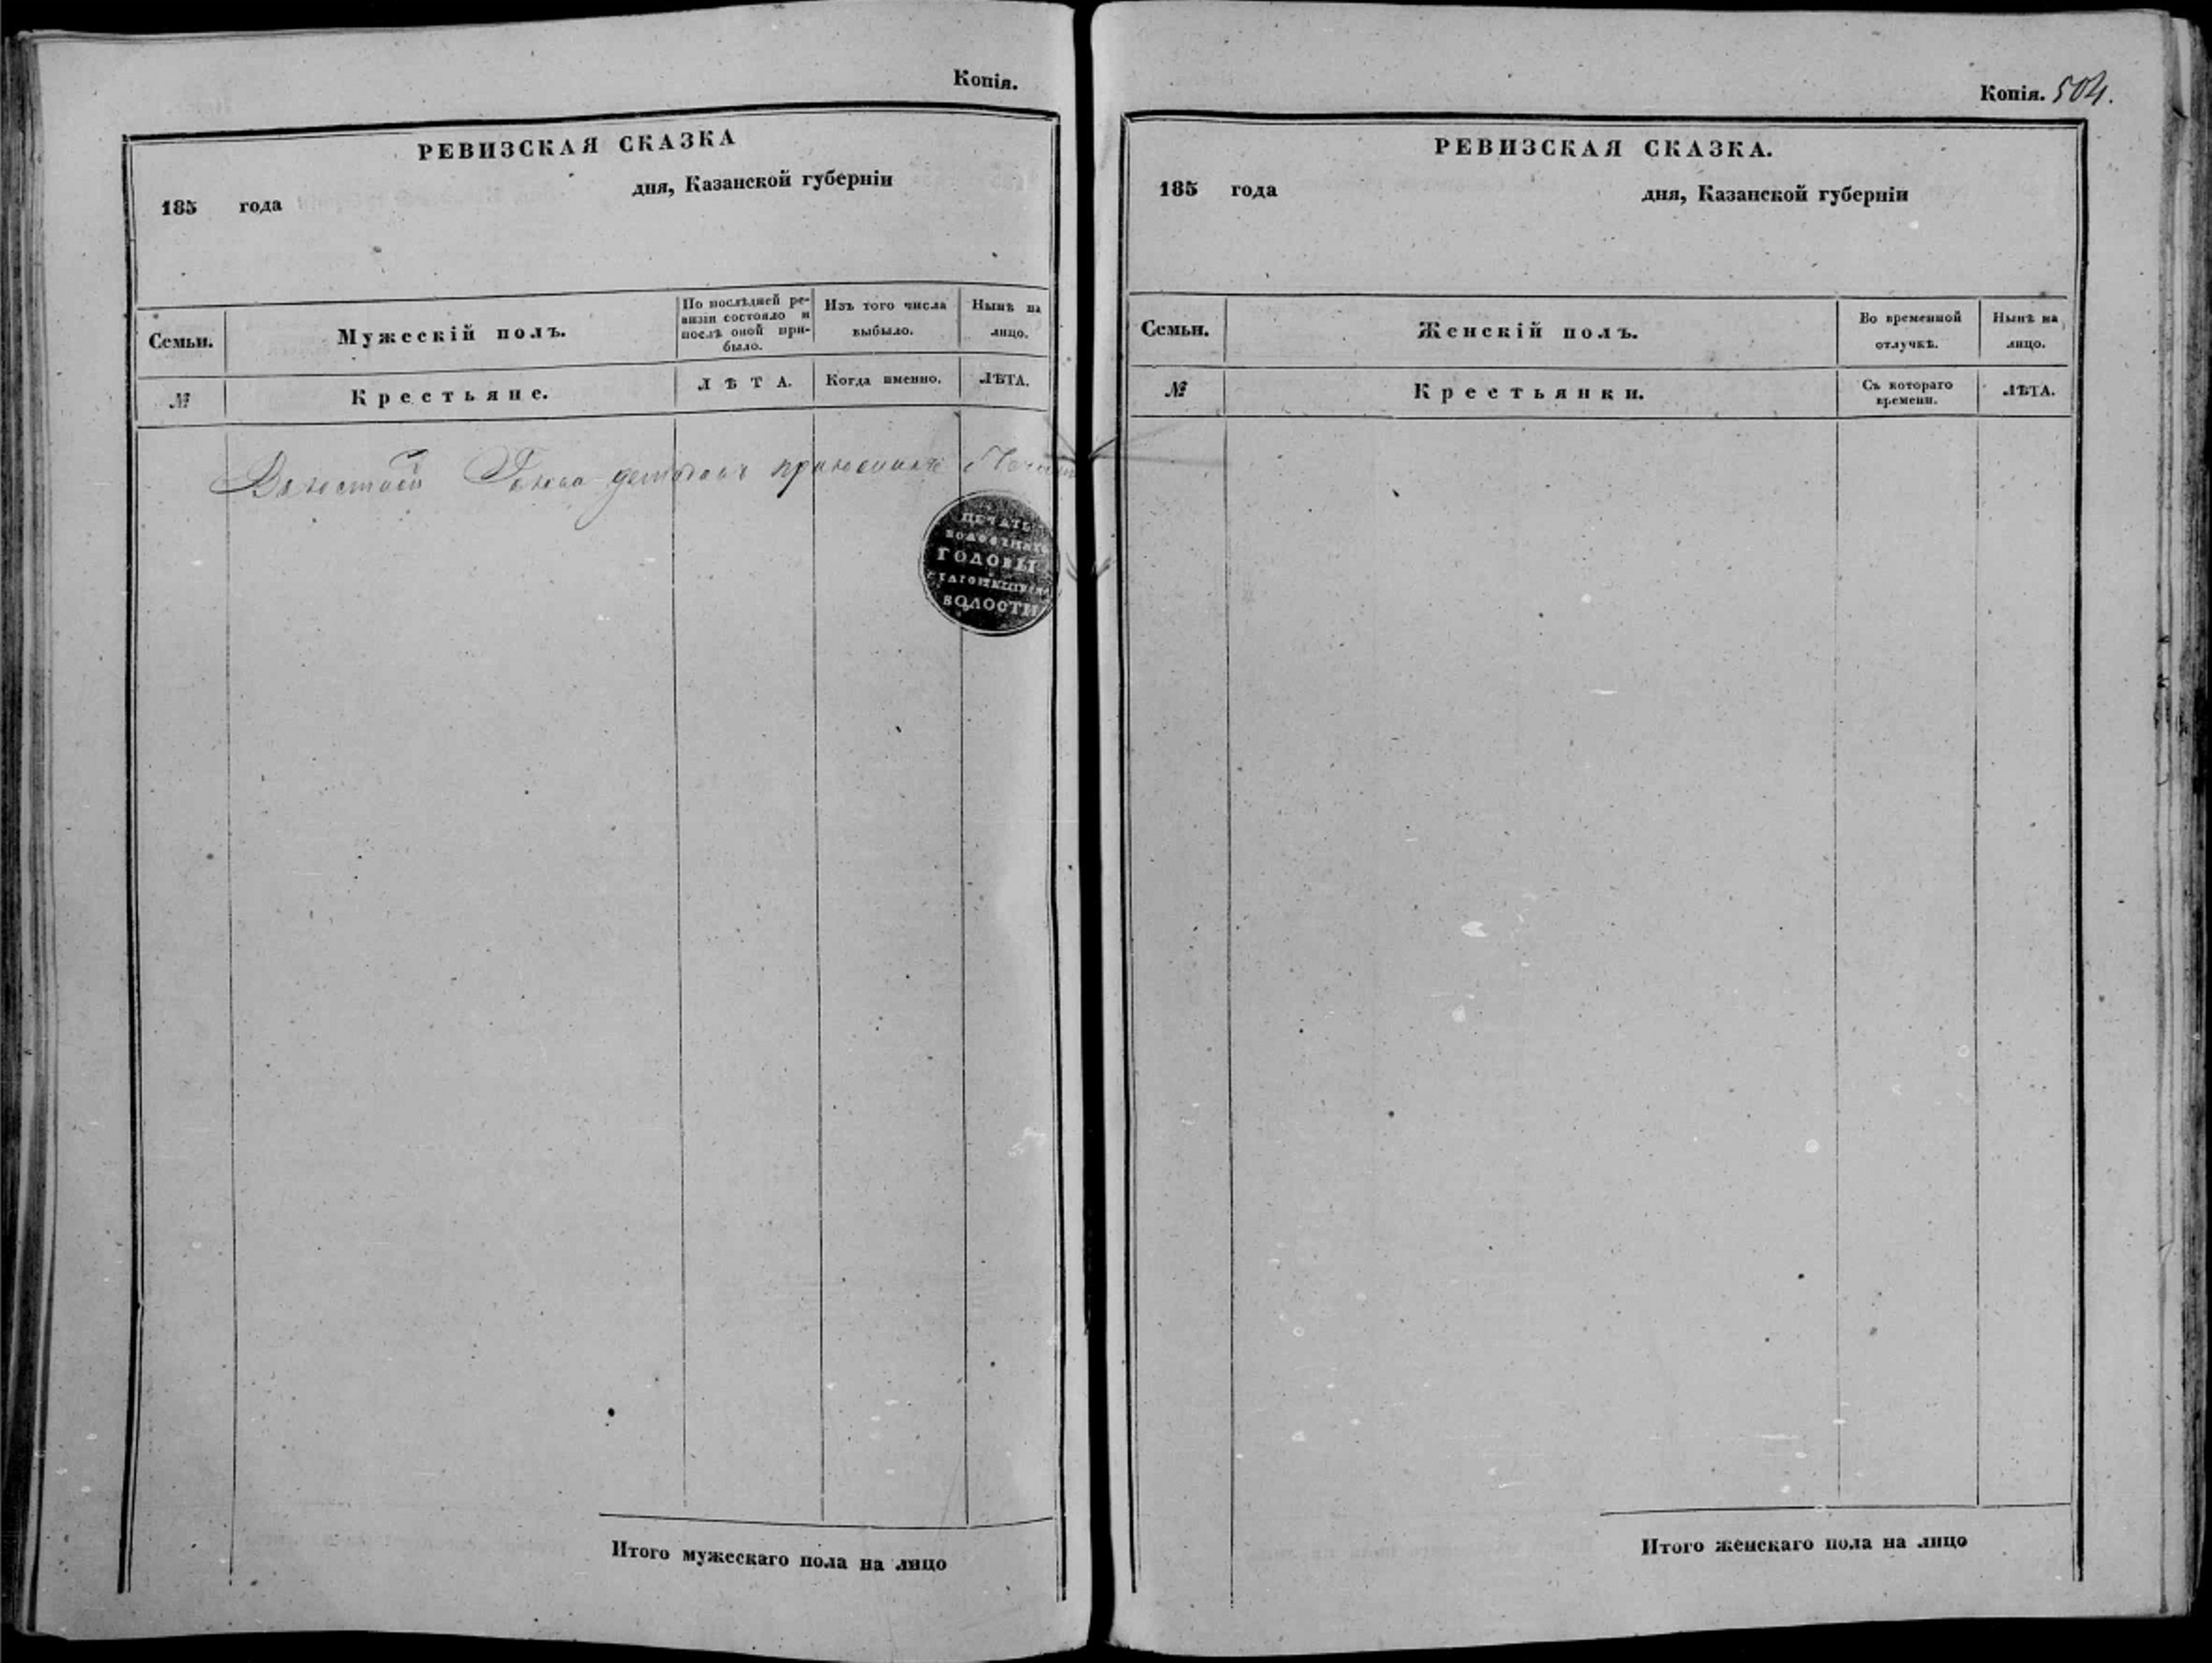 Копія.
РЕВИЗСКАЯ СКАЗКА
185 года дня, Казанской губерніи
Семьи. Мужескій полъ. По послѣдней ре-
визіи состояло и
послѣ оной при-
было. Изъ того числа
выбыло. Нынѣ на
лицо.
№ Крестьяне. ЛѢТА. Когда именно. ЛѢТА.
приложилъ
ПЕЧАТЬ
ГОЛОВЫ
ВОЛОСТИ
Итого мужескаго пола на лицо
Копія. 504.
РЕВИЗСКАЯ СКАЗКА.
185 года дня, Казанской губерніи
Семьи. Женскій полъ. Во временной
отлучкѣ. Нынѣ на
лицо.
№ Крестьянки. Съ котораго
времени. ЛѢТА.
Итого женскаго пола на лицо